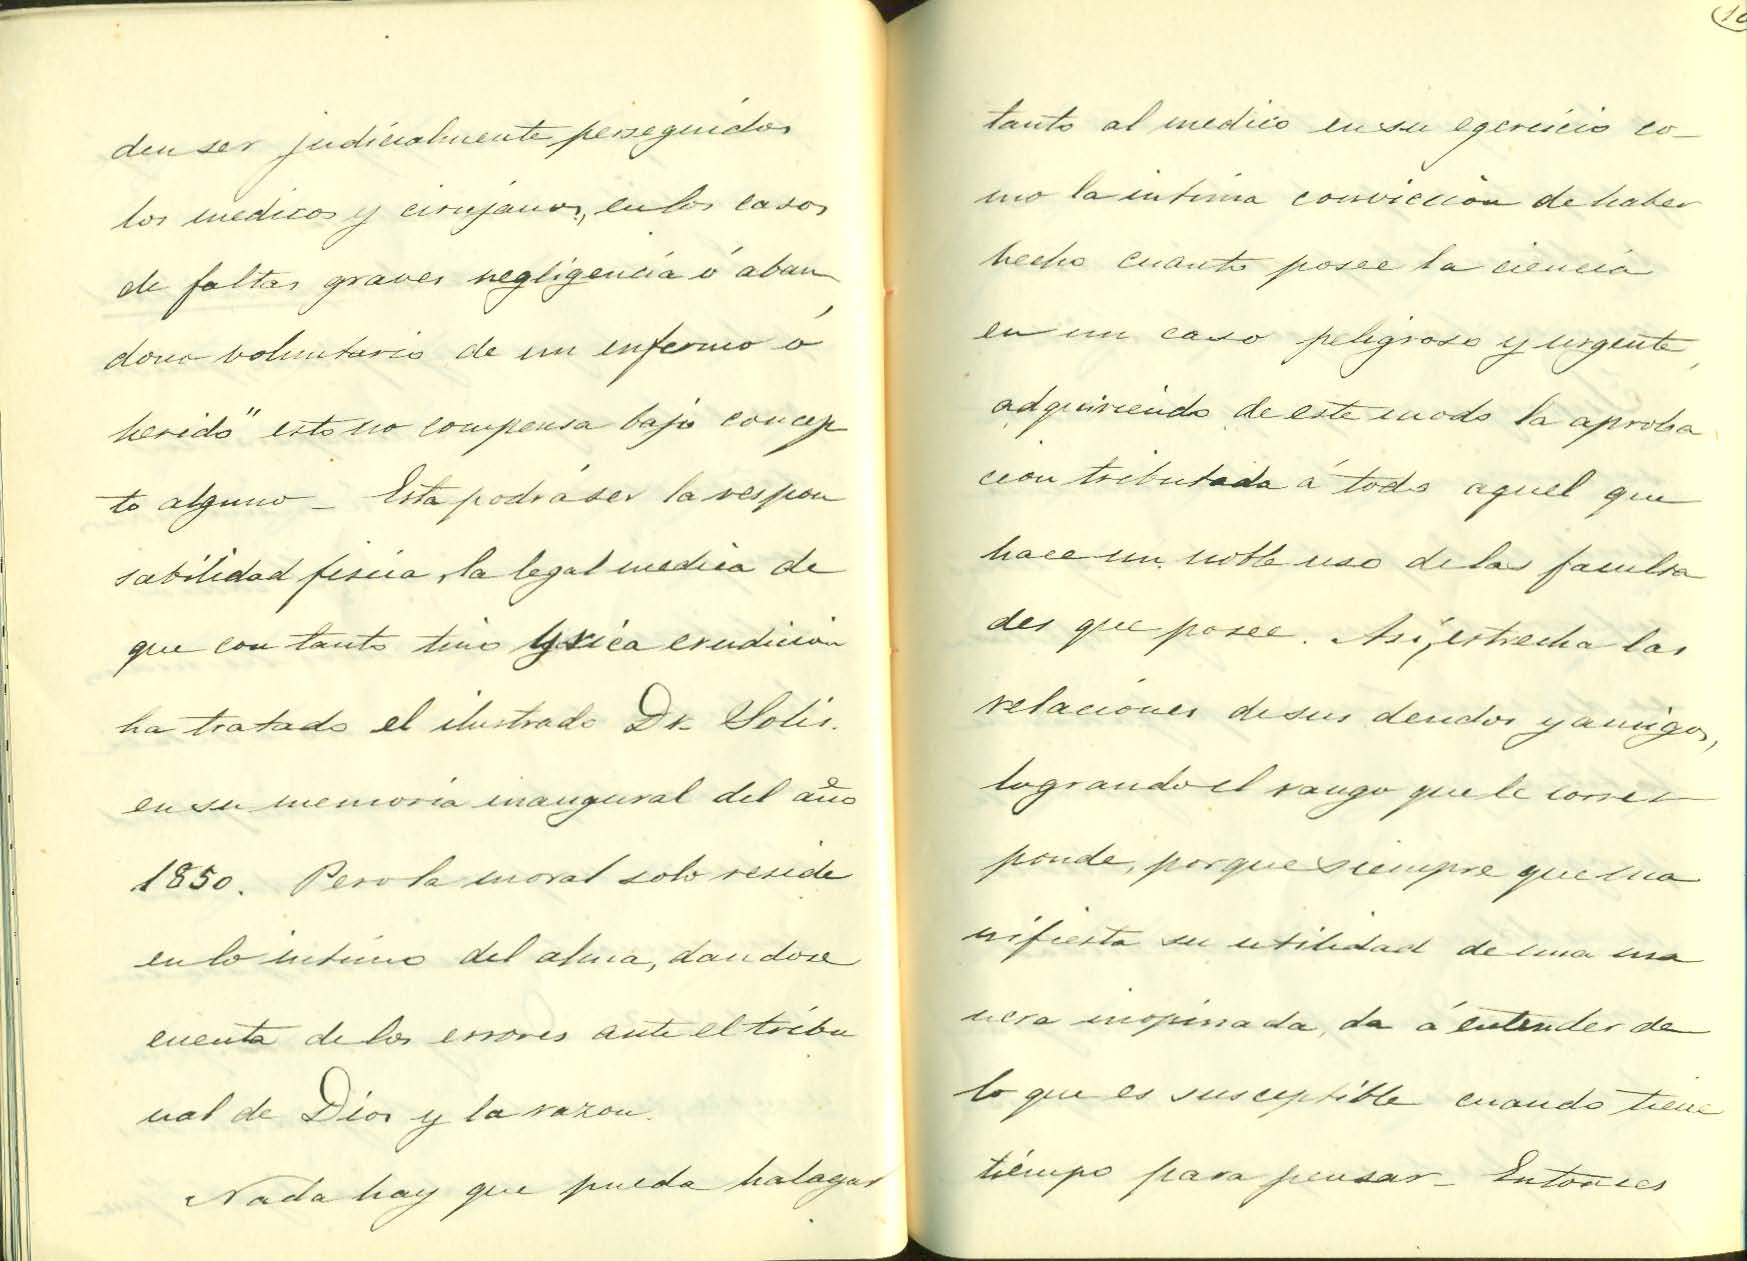 den ser judicialmente perseguidos
los medicos y cirujanos, en los casos
de faltas graves negligencia ó aban
dono voluntario de un enfermo ó
herido" esto no compensa bajo concep
to alguno _ Esta podrá ser la respon
sabilidad fisica, la legal medica de
que con tanto tino y rica erudicion
ha tratado el ilustrado Dr. Solis.
en su memoria inaugural del año
1850. Pero la moral solo reside
en lo intimo del alma, dandose
cuenta de los errores ante el tribu
nal de Dios y la razon.
Nada hay que pueda halagar
tanto al medico en su egercicio co_
mo la intima conviccion de haber
hecho cuanto posee la ciencia
en un caso peligroso y urgente,
adquiriendo de este modo la aproba
cion tributada á todo aquel que
hace un noble uso de las faculta
des que posee. Asi, estrecha las
relaciones de sus deudos y amigos,
logrando el rango que le corres
ponde, porque siempre que ma
nifiesta su utilidad de una ma
nera inopinada, da á entender de
lo que es susceptible cuando tiene
tiempo para pensar_ Entonces